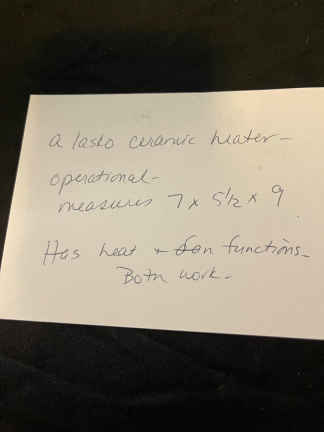 a lasko ceramic heater -
operational -
measures 7 x 5 1/2 x 9
Has heat & fan functions -
Both work -